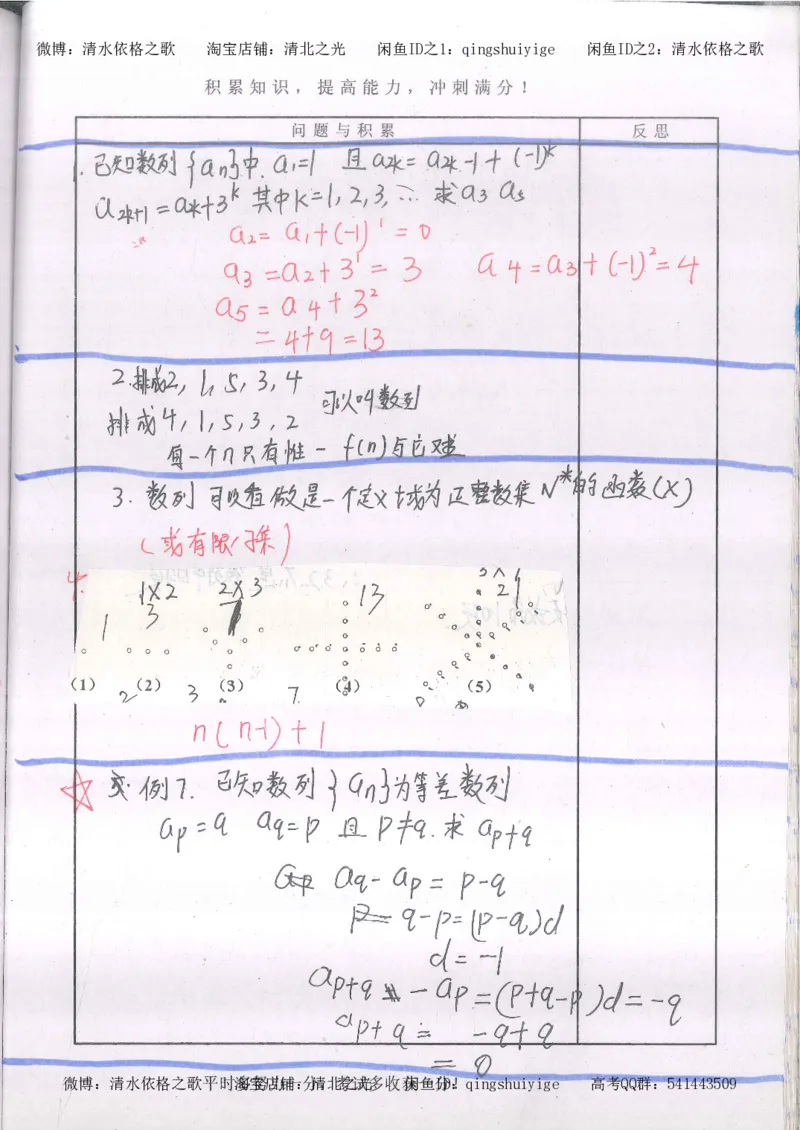 微博：清水依格之歌 淘宝店铺：清北之光 闲鱼ID之1：qingshuiyige 闲鱼ID之2：清水依格之歌
积累知识，提高能力，冲刺满分！
问题与积累 反思
1. 已知数列{an}中. a1=1 且a2k= a2k-1+(-1)^k
a2k+1=a2k+3^k 其中k=1,2,3,… 求a3 a5
a2= a1+(-1)^1=0
a3=a2+3^1=3 a4=a3+(-1)^2=4
a5=a4+3^2
=4+9=13
2.排成2,1,5,3,4
可以叫数列
排成4,1,5,3,2
每一个n只有惟一f(n)与它对应
3. 数列可以看做是一个定义域为正整数集N*的函数(X)
(或有限子集)
4.
1×2 2×3 13 21
1 3 7
(1) (2) (3) (4) (5)
2 3 7
n(n-1)+1
☆ 例7. 已知数列{an}为等差数列
ap=q aq=p 且p≠q.求 ap+q
aq-ap=p-q
q-p=(p-q)d
d=-1
ap+q-ap=(p+q-p)d=-q
ap+q=-q+q
=0
微博：清水依格之歌 淘宝店铺：清北之光 闲鱼ID：qingshuiyige 高考QQ群：541443509